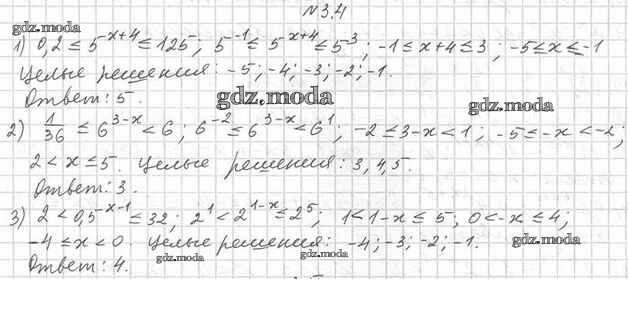 №3.4
gdz.moda
1) 0,2 ≤ 5^{-x+4} ≤ 125; 5^{-1} ≤ 5^{x+4} ≤ 5^3; -1 ≤ x+4 ≤ 3; -5 ≤ x ≤ -1
Целые решения: -5; -4; -3; -2; -1.
Ответ: 5.
gdz.moda
gdz.moda
2) 1/36 ≤ 6^{3-x} < 6; 6^{-2} ≤ 6^{3-x} < 6^1; -2 ≤ 3-x < 1; -5 ≤ -x < -2;
2 < x ≤ 5. Целые решения: 3, 4, 5.
Ответ: 3.
3) 2 < 0,5^{-x-1} ≤ 32; 2^1 < 2^{1-x} ≤ 2^5; 1 < 1-x ≤ 5; 0 < -x ≤ 4;
-4 ≤ x < 0. Целые решения: -4; -3; -2; -1.
gdz.moda
Ответ: 4.
gdz.moda
gdz.moda